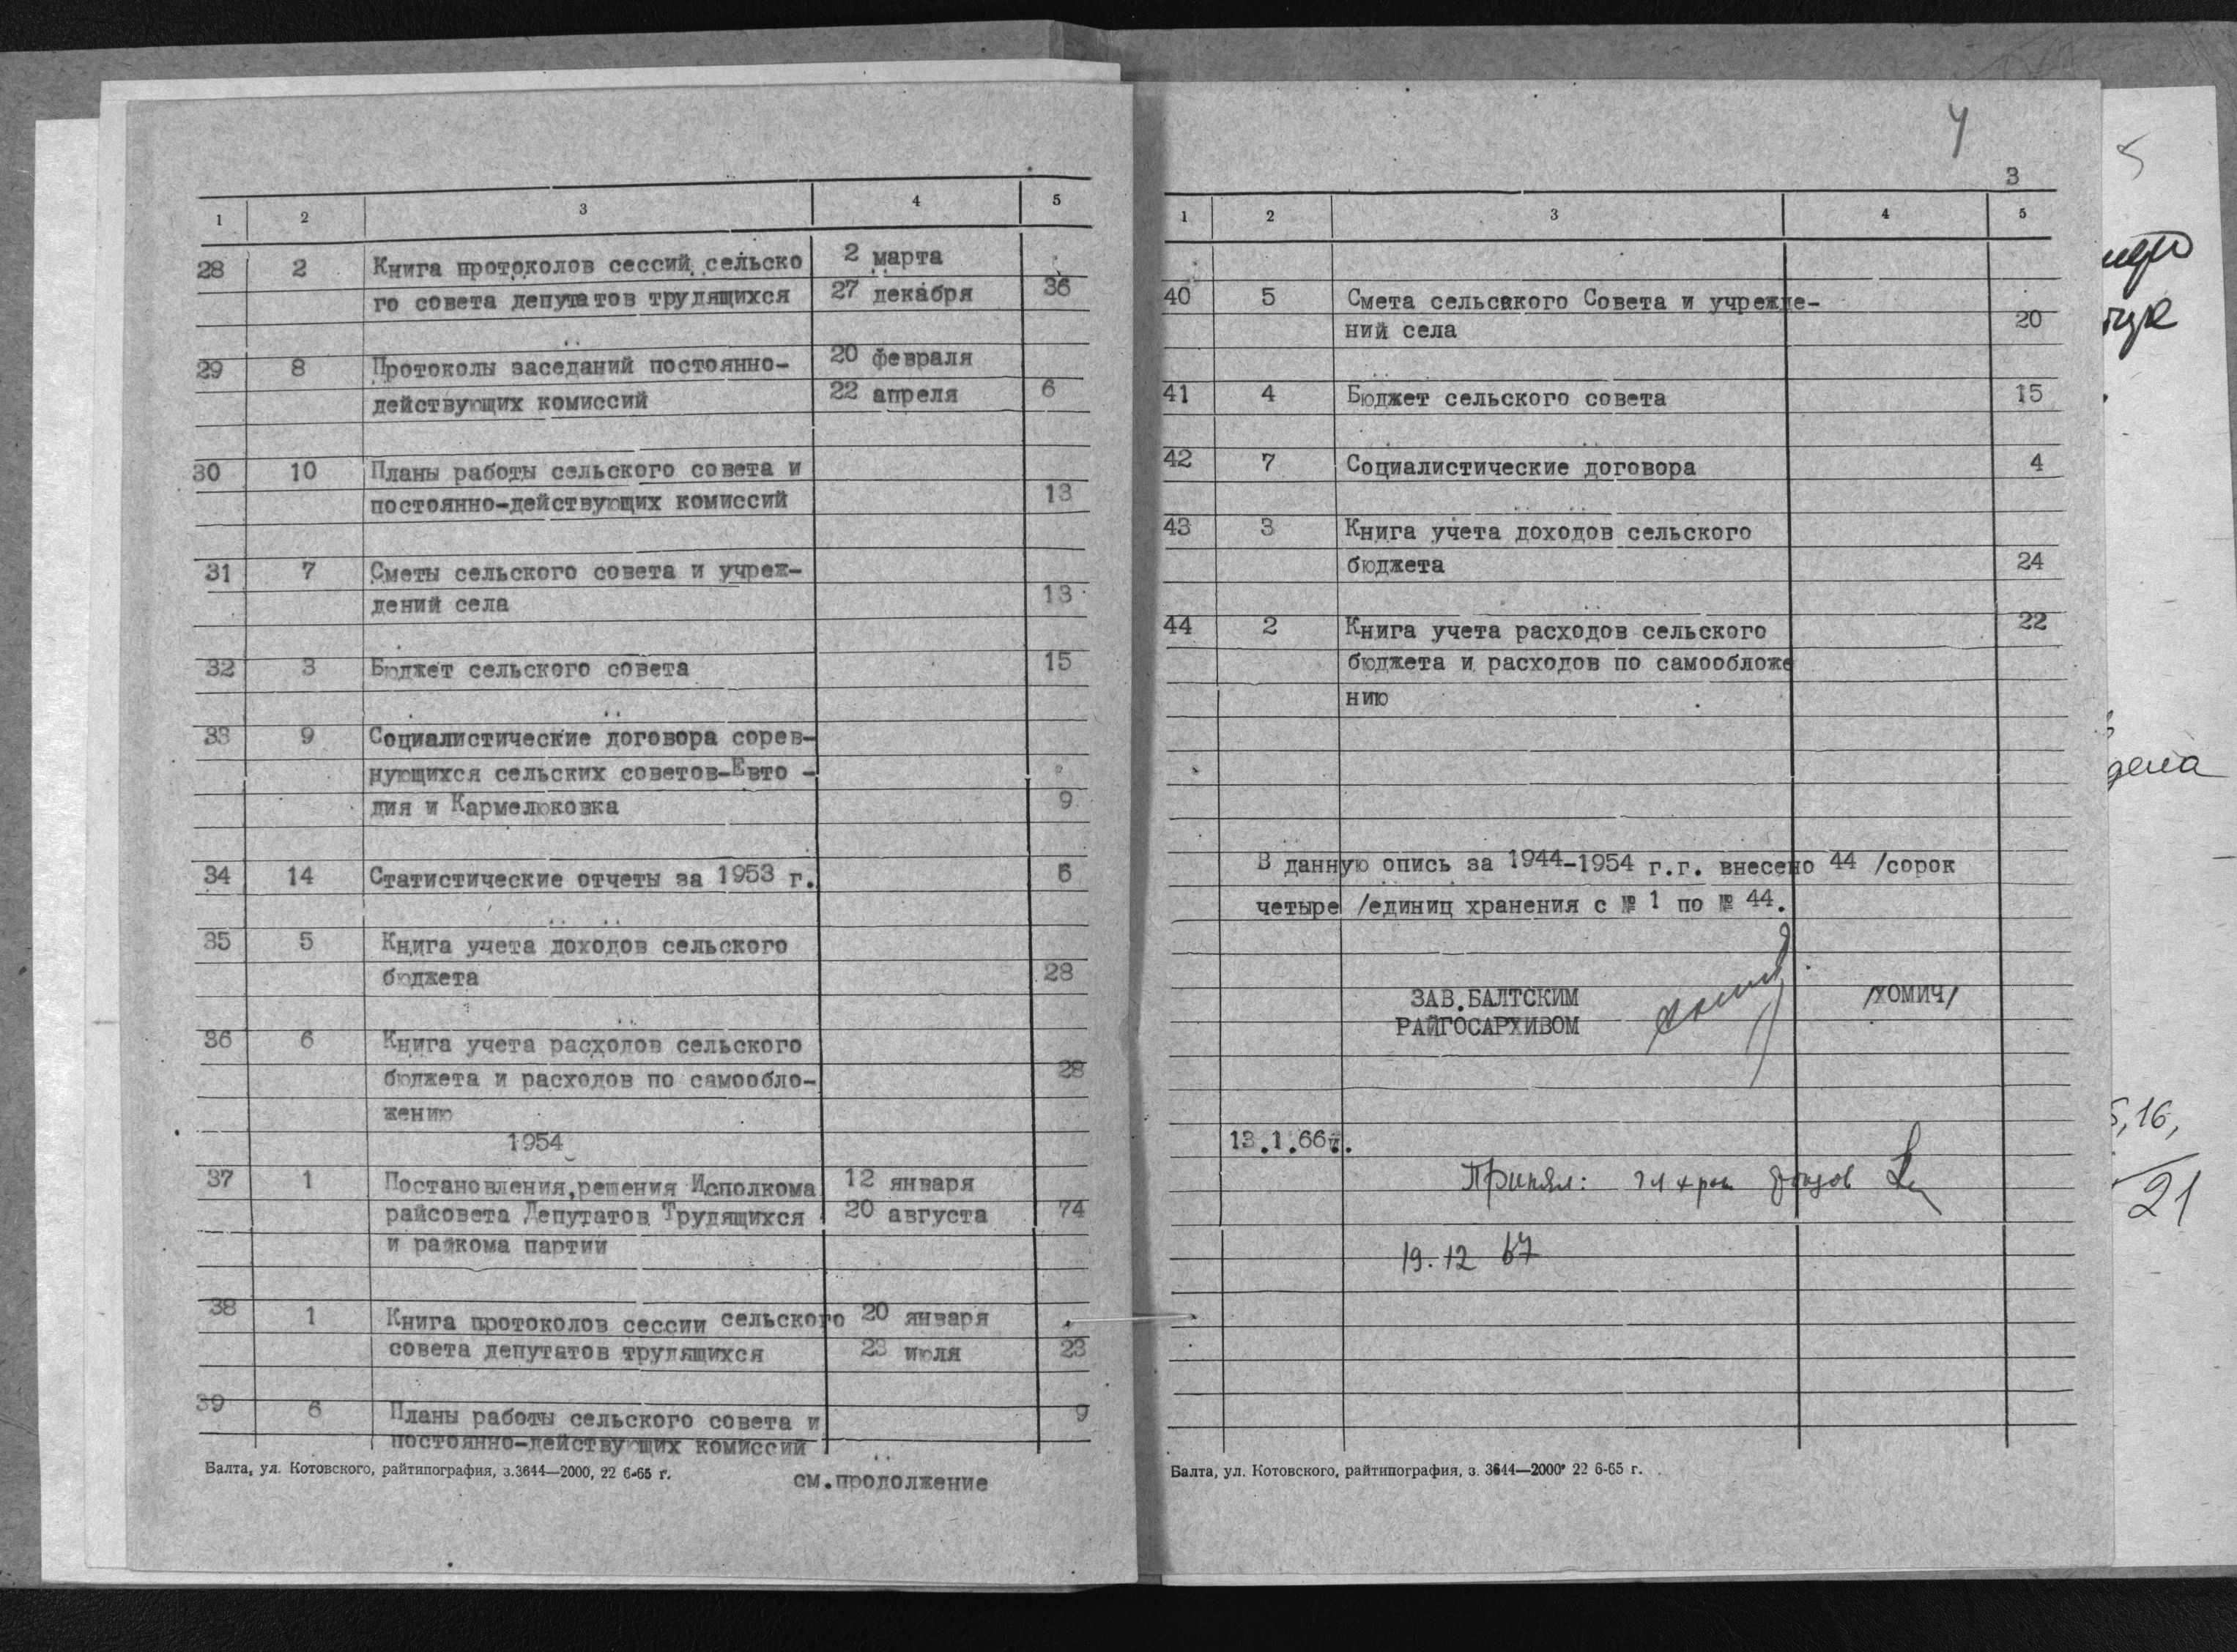 1 2 3 4 5
28 2 Книга протоколов сессий сельско 2 марта
го совета депутатов трудящихся 27 декабря 36
29 8 Протоколы заседаний постоянно- 20 февраля
действующих комиссий 22 апреля 6
30 10 Планы работы сельского совета и
постоянно-действующих комиссий 13
31 7 Сметы сельского совета и учреж-
дений села 13
32 3 Бюджет сельского совета 15
33 9 Социалистические договора сорев-
нующихся сельских советов-Евто -
дия и Кармелюковка 9
34 14 Статистические отчеты за 1953 г. 6
35 5 Книга учета доходов сельского
бюджета 28
36 6 Книга учета расходов сельского
бюджета и расходов по самообло- 28
жению
1954
37 1 Постановления,решения Исполкома 12 января
райсовета Депутатов Трудящихся 20 августа 74
и райкома партии
38 1 Книга протоколов сессии сельского 20 января
совета депутатов трудящихся 23 июля 23
39 6 Планы работы сельского совета и 9
постоянно-действующих комиссий
Балта, ул. Котовского, райтипография, з.3644—2000, 22 6-65 г.
см.продолжение
4
3
1 2 3 4 5
40 5 Смета сельсакого Совета и учрежде-
ний села 20
41 4 Бюджет сельского совета 15
42 7 Социалистические договора 4
43 3 Книга учета доходов сельского
бюджета 24
44 2 Книга учета расходов сельского 22
бюджета и расходов по самообложе
нию
В данную опись за 1944-1954 г.г. внесено 44 /сорок
четыре /единиц хранения с № 1 по № 44.
ЗАВ.БАЛТСКИМ /ХОМИЧ/
РАЙГОСАРХИВОМ
13.1.66г.
Принял:
19.12 67
Балта, ул. Котовского, райтипография, з. 3644—2000 22 6-65 г.
5
дела
16,
21